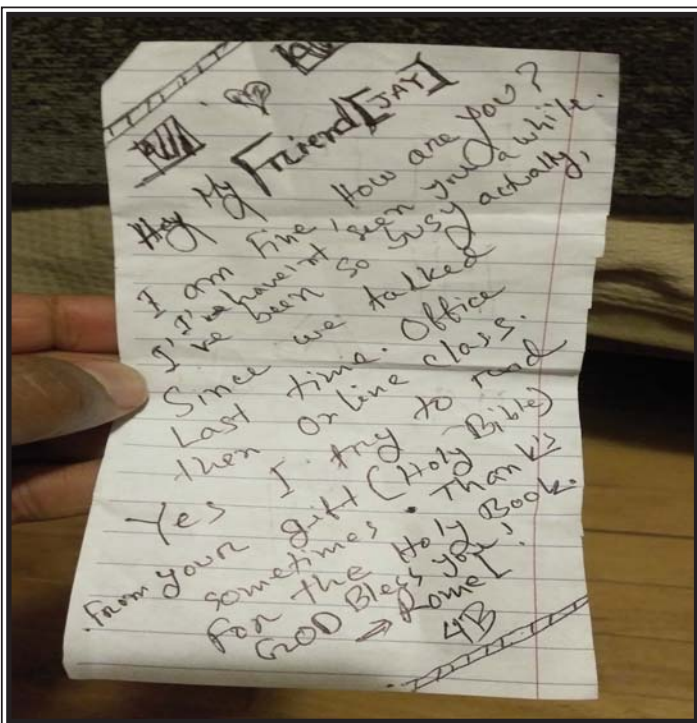 Hey My Friend [JAY]
I am Fine, How are you?
I've havein't seen you a while.
I've been so busy actually,
Since we talked
Last time. Office
then online class.
Yes I try to read
From your gift (Holy Bible)
sometimes. Thanks
For the Holy Book.
GOD Bless you!
→ Romel
4B